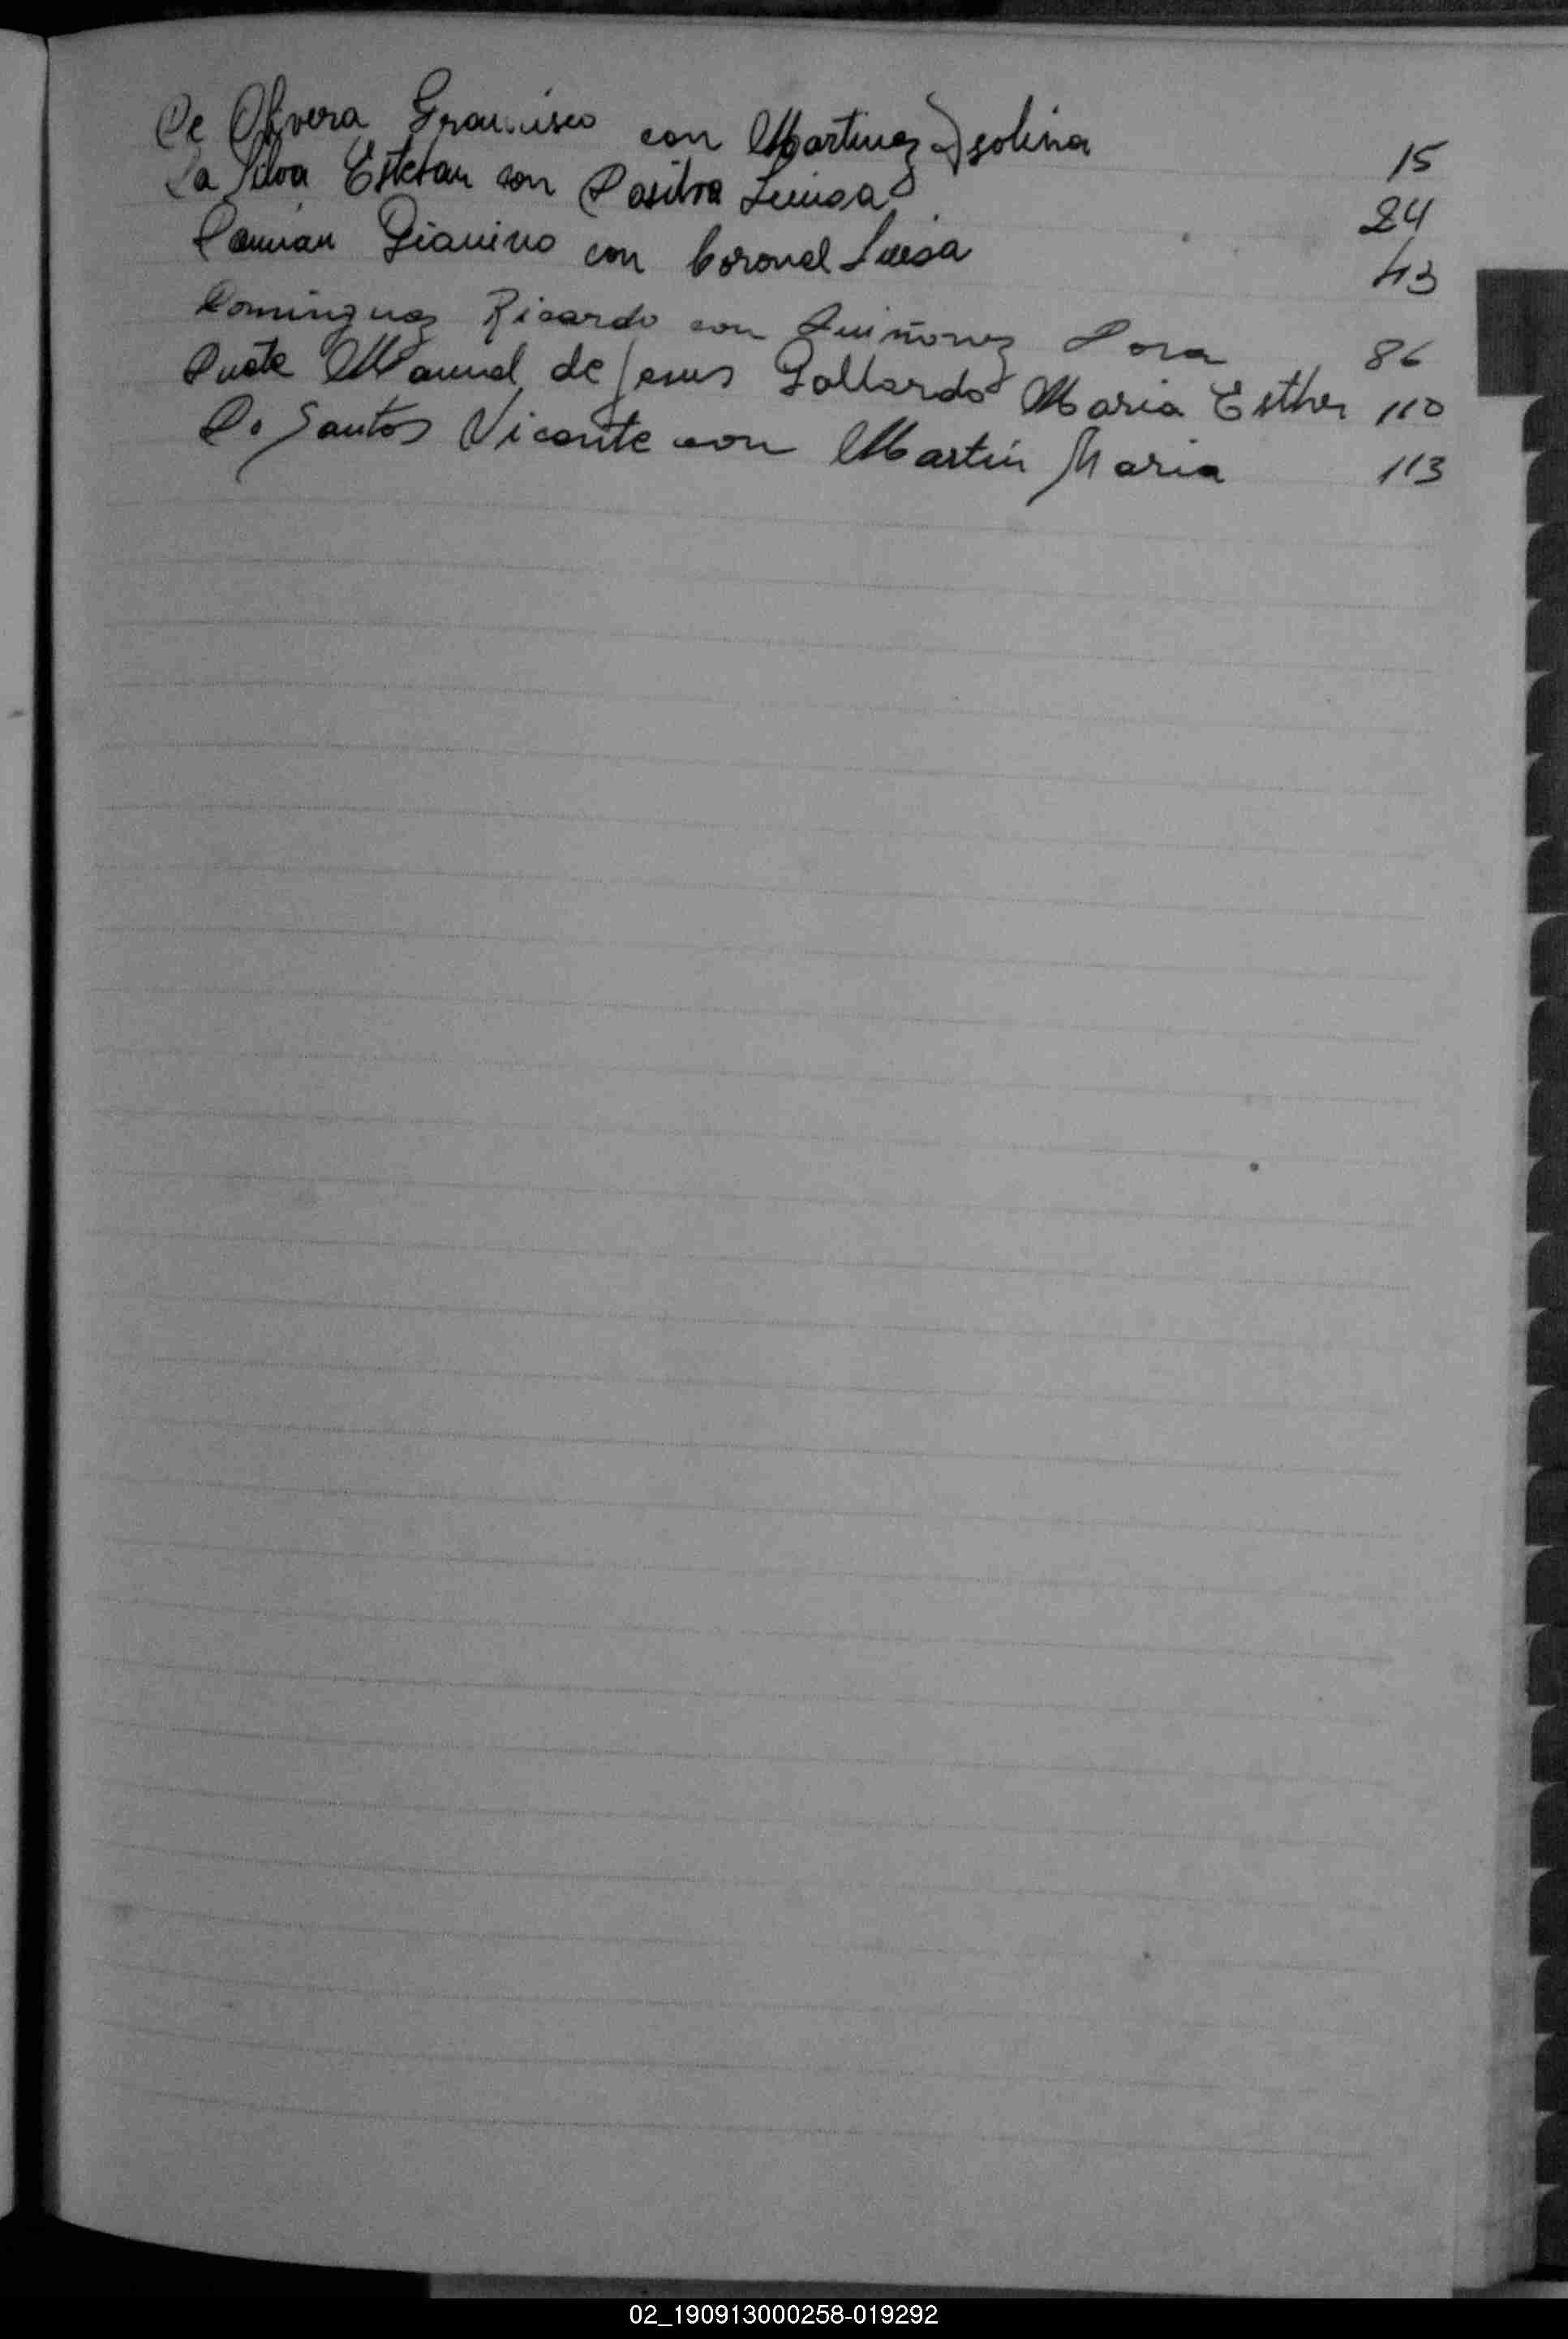 De Olivera Francisco con Martinez Isolina 15
Da Silva Esteban con Dasilva Luisa 24
Damian Pianino con Coronel Luisa 43
Dominguez Ricardo con Quiñonez Dora 86
Duate Manuel de Jesus Gallardo Maria Esther 110
Do Santos Vicente con Martin Maria 113
02_190913000258-019292